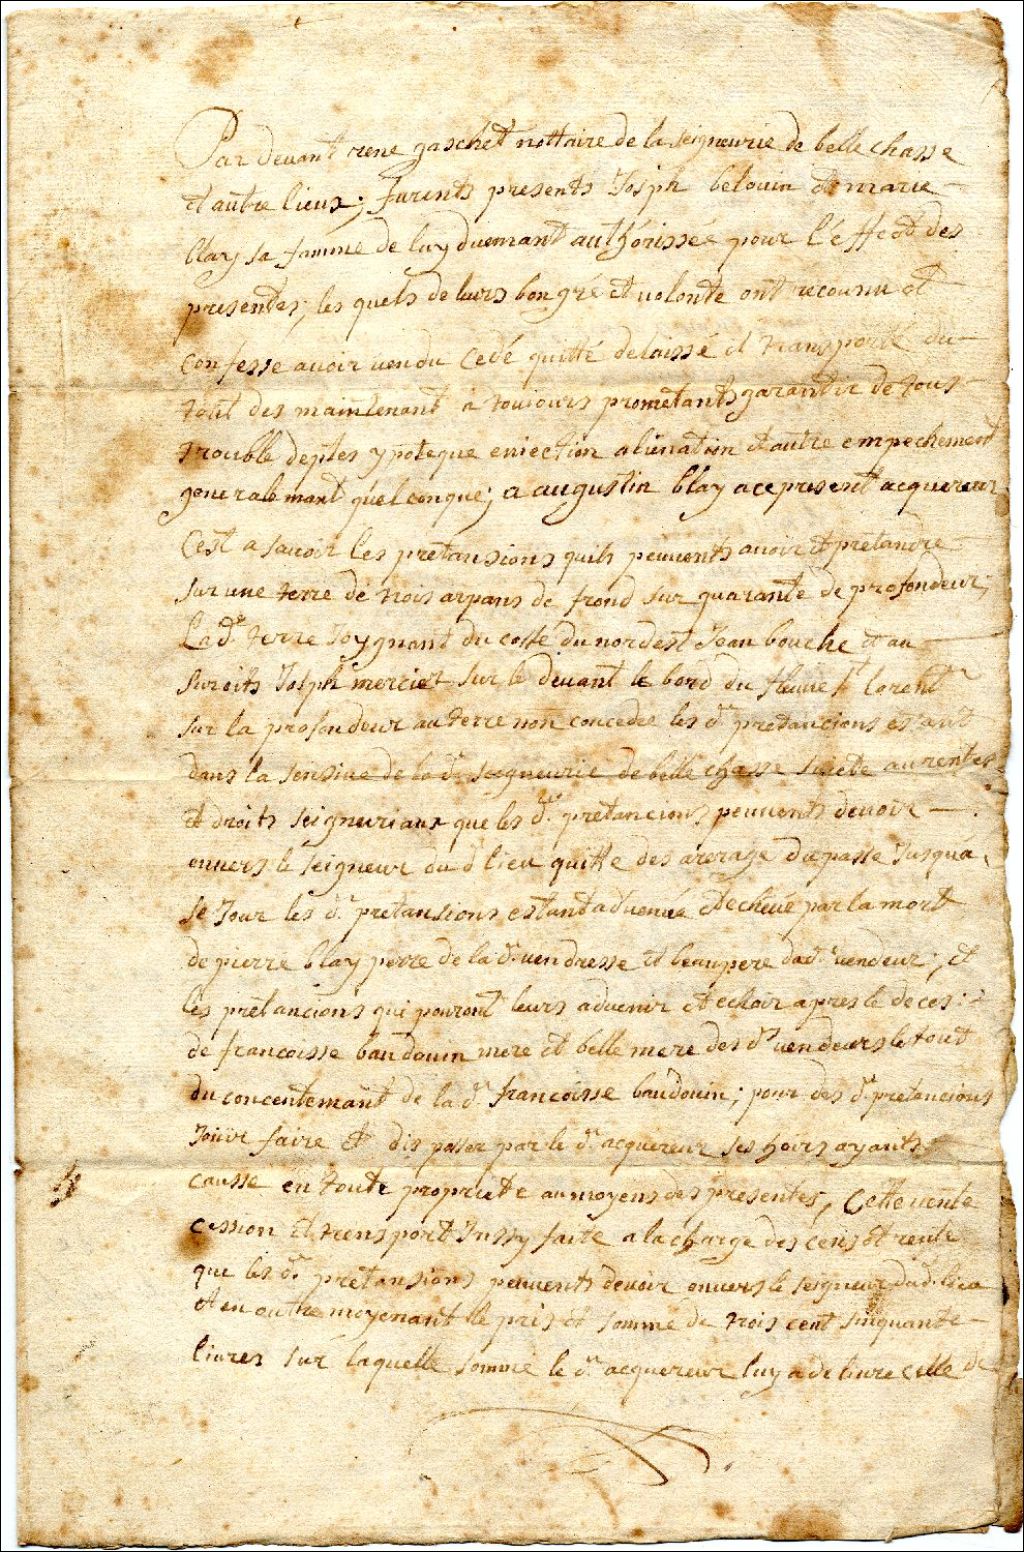 Par devant rene gaschet nottaire de la seigneurie de belle chasse
et autre lieux; furents presents Josph belouin et marie
blay sa famme de luy duemant authorissée pour l'éffect des
presentes; les quels de leurs bon gré et volonte ont reconnu et
confesse avoir vendu cedé quitté delaissé et transporté du
tout des maintenant a toujours prometants garantir de tous
trouble deptes ypoteque eviection alienation et autre empechement
generalemant quelconque; a augustin blay ace present acquereur
Cest a savoir les pretansions quils peuvents avoir et pretandre
sur une terre de trois arpans de frond sur quarante de profondeur;
La d.te terre Joygnant du costé du nordest Jean bouche et au
suroits Josph mercier sur le devant le bord du fleuve st lorent
sur la profondeur au terre non concedée les d. pretancions estant
dans la sensive de la d. seigneurie de belle chasse sujete au rentes
et droits seigneuriaux que les d. pretancions peuvents devoir
envers le seigneur du d lieu quitte des arerage du passe Jusqua
se Jour les d. pretansions estant advenue et echeue par la mort
de pierre blay perre de la d. vendresse et beaupere dud. vendeur; et
les pretancions qui pouront leurs advenir et echoir apres le deces
de francoisse baudouin mere et belle mere des d. vendeurs le tout
du concentemant de la d. francoisse baudouin; pour des d. pretancions
Jouir faire et dis poser par le d. acquereur ses hoirs ayants
causse en toute propriete au moyens des presentes, Cette vente
cession et trensport Inssy faite a la charge des cens et rente
que les d. pretansions peuvents devoir envers le seigneur dud. lieu
et en outre moyenant le pris et somme de trois cent sinquante
livres sur laquelle somme le d. acquereur luy a delivre celle de